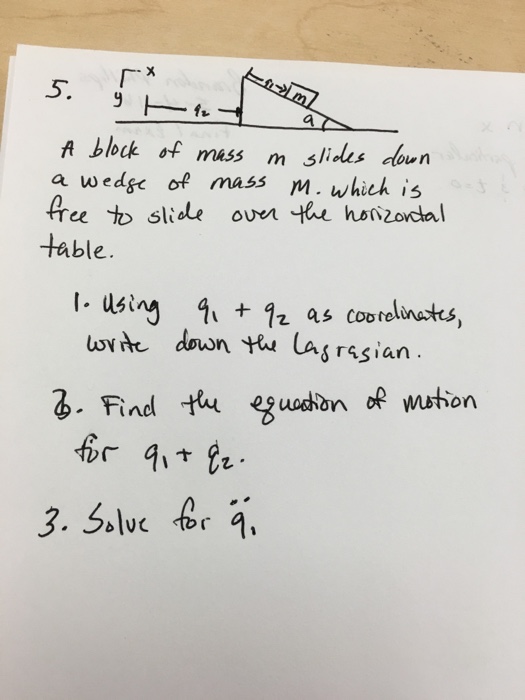 5.
x
y
q2
q1
m
a
A block of mass m slides down
a wedge of mass M. which is
free to slide over the horizontal
table.
1. Using q1 + q2 as coordinates,
write down the Lagrasian.
2. Find the equation of motion
for q1 + q2.
3. Solve for q̈1